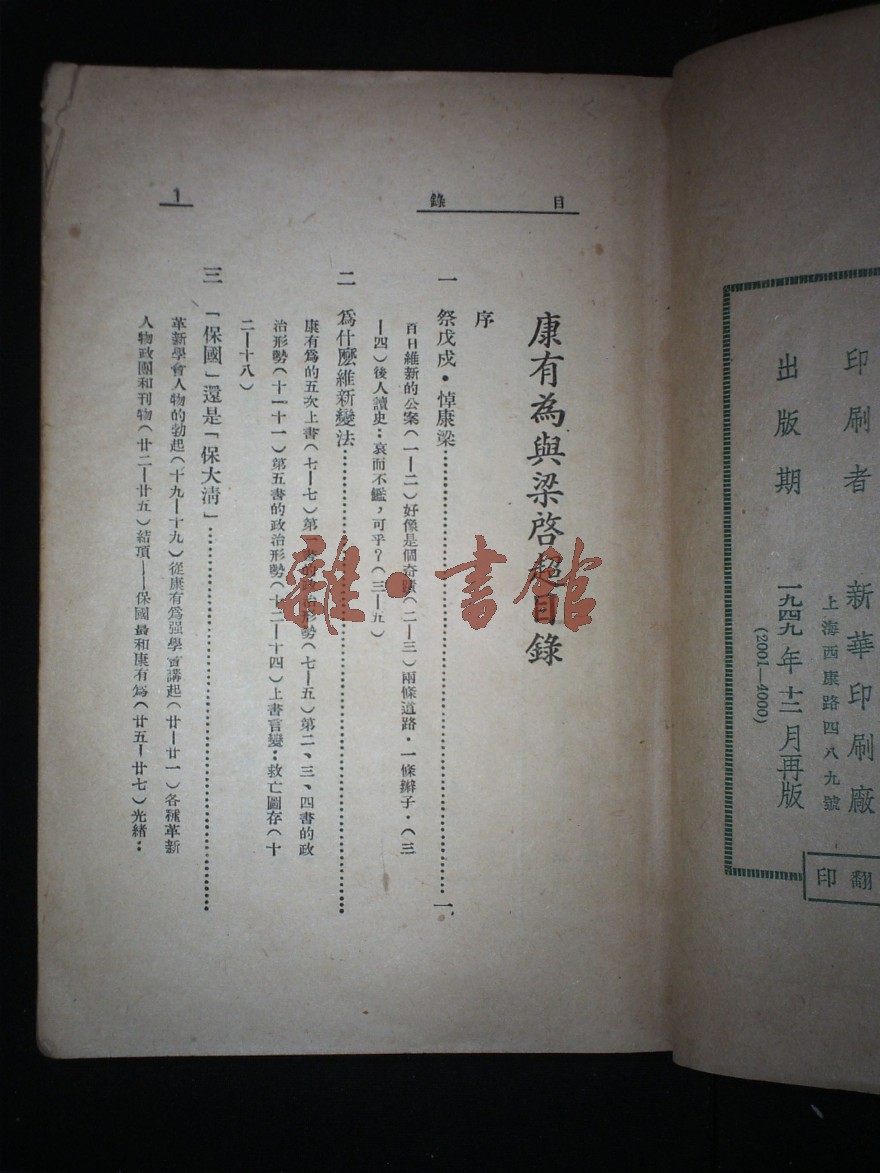 印刷者 新華印刷廠
上海西康路四八九號
出版期 一九四九年十二月再版
(2001—4000)
翻
印
目 錄
1
康有為與梁啓超目錄
序
一 祭戊戌・悼康梁…………一
百日維新的公案(一—二)好像是個奇蹟(二—三)兩條道路・一條辮子・(三
—四)後人讀史：哀而不鑑，可乎？(三—五)
二 爲什麼維新變法…………
康有爲的五次上書(七—七)第一書的政治形勢(七—五)第二、三、四書的政
治形勢(十一十一)第五書的政治形勢(十二—十四)上書言變：救亡圖存(十
二—十八)
三 「保國」還是「保大清」…………
革新學會人物的勃起(十九—十九)從康有爲强學會講起(廿—廿一)各種革新
人物政團和刊物(廿二—廿五)結項——保國最和康有爲(廿五—廿七)光緒：
雜・書館